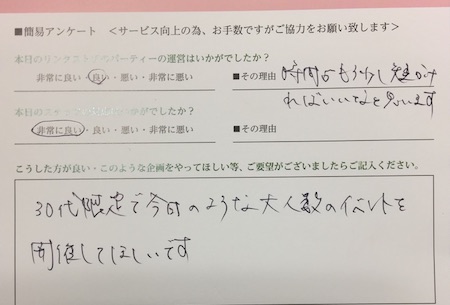 ■簡易アンケート ＜サービス向上の為、お手数ですがご協力をお願い致します＞
本日のリンクストアのパーティーの運営はいかがでしたか？
非常に良い・良い・悪い・非常に悪い
■その理由 時間がもう少し短かけ
ればいいなと思います
本日のスタッフ がでしたか？
非常に良い・良い・悪い・非常に悪い
■その理由
こうした方が良い・このような企画をやってほしい等、ご要望がございましたらご記入ください。
30代限定で今日のような大人数のイベントを
開催してほしいです